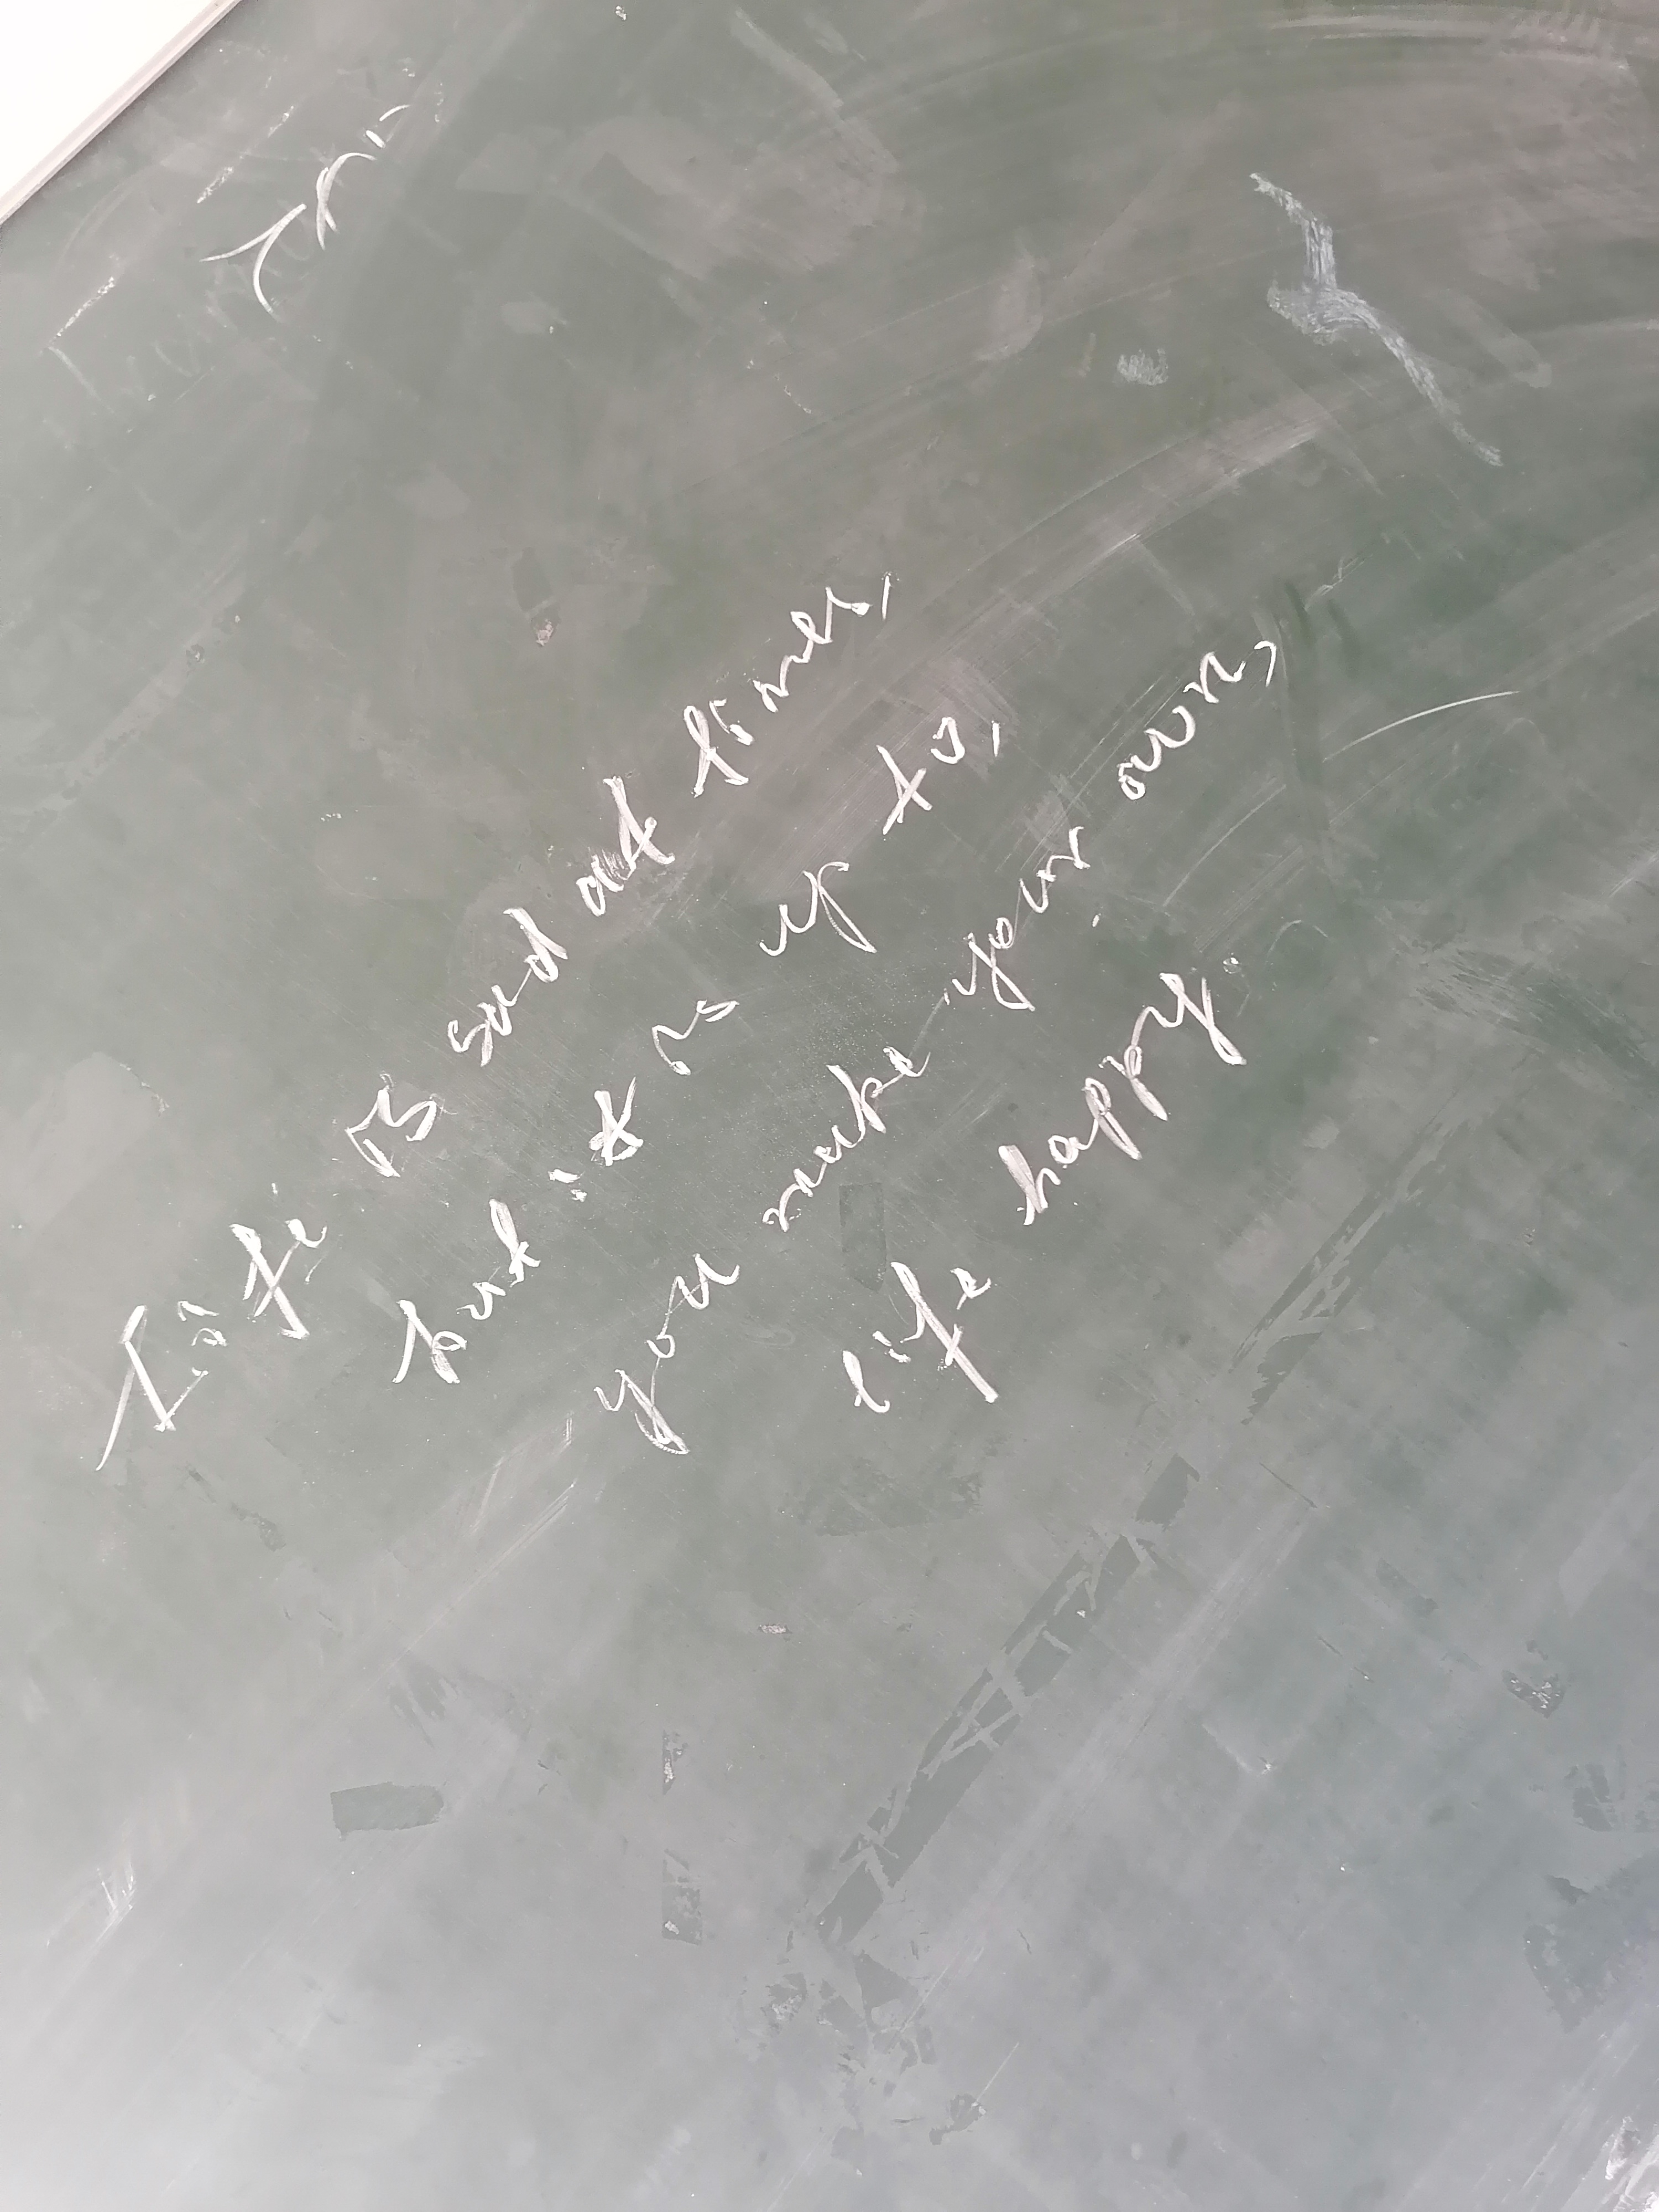 Life is sad at times,
but it is up to,
you make your own,
life happy.